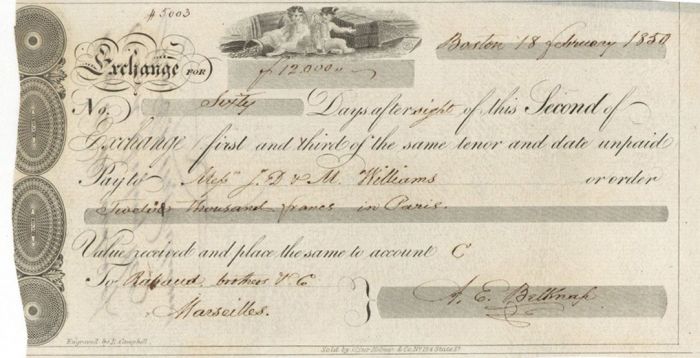 # 5003
Boston 18 February 1850
Exchange FOR f 12,000
No. Sixty Days after sight of this Second of
Exchange (first and third of the same tenor and date unpaid
Pay to Messrs J. D & M. Williams or order
Twelve Thousand francs in Paris.
Value received and place the same to account C
To Rabaud, brothers & C
Marseilles.
A. E. Belknap
Engraved by D. Campbell.
Sold by & Co. No 124 State St